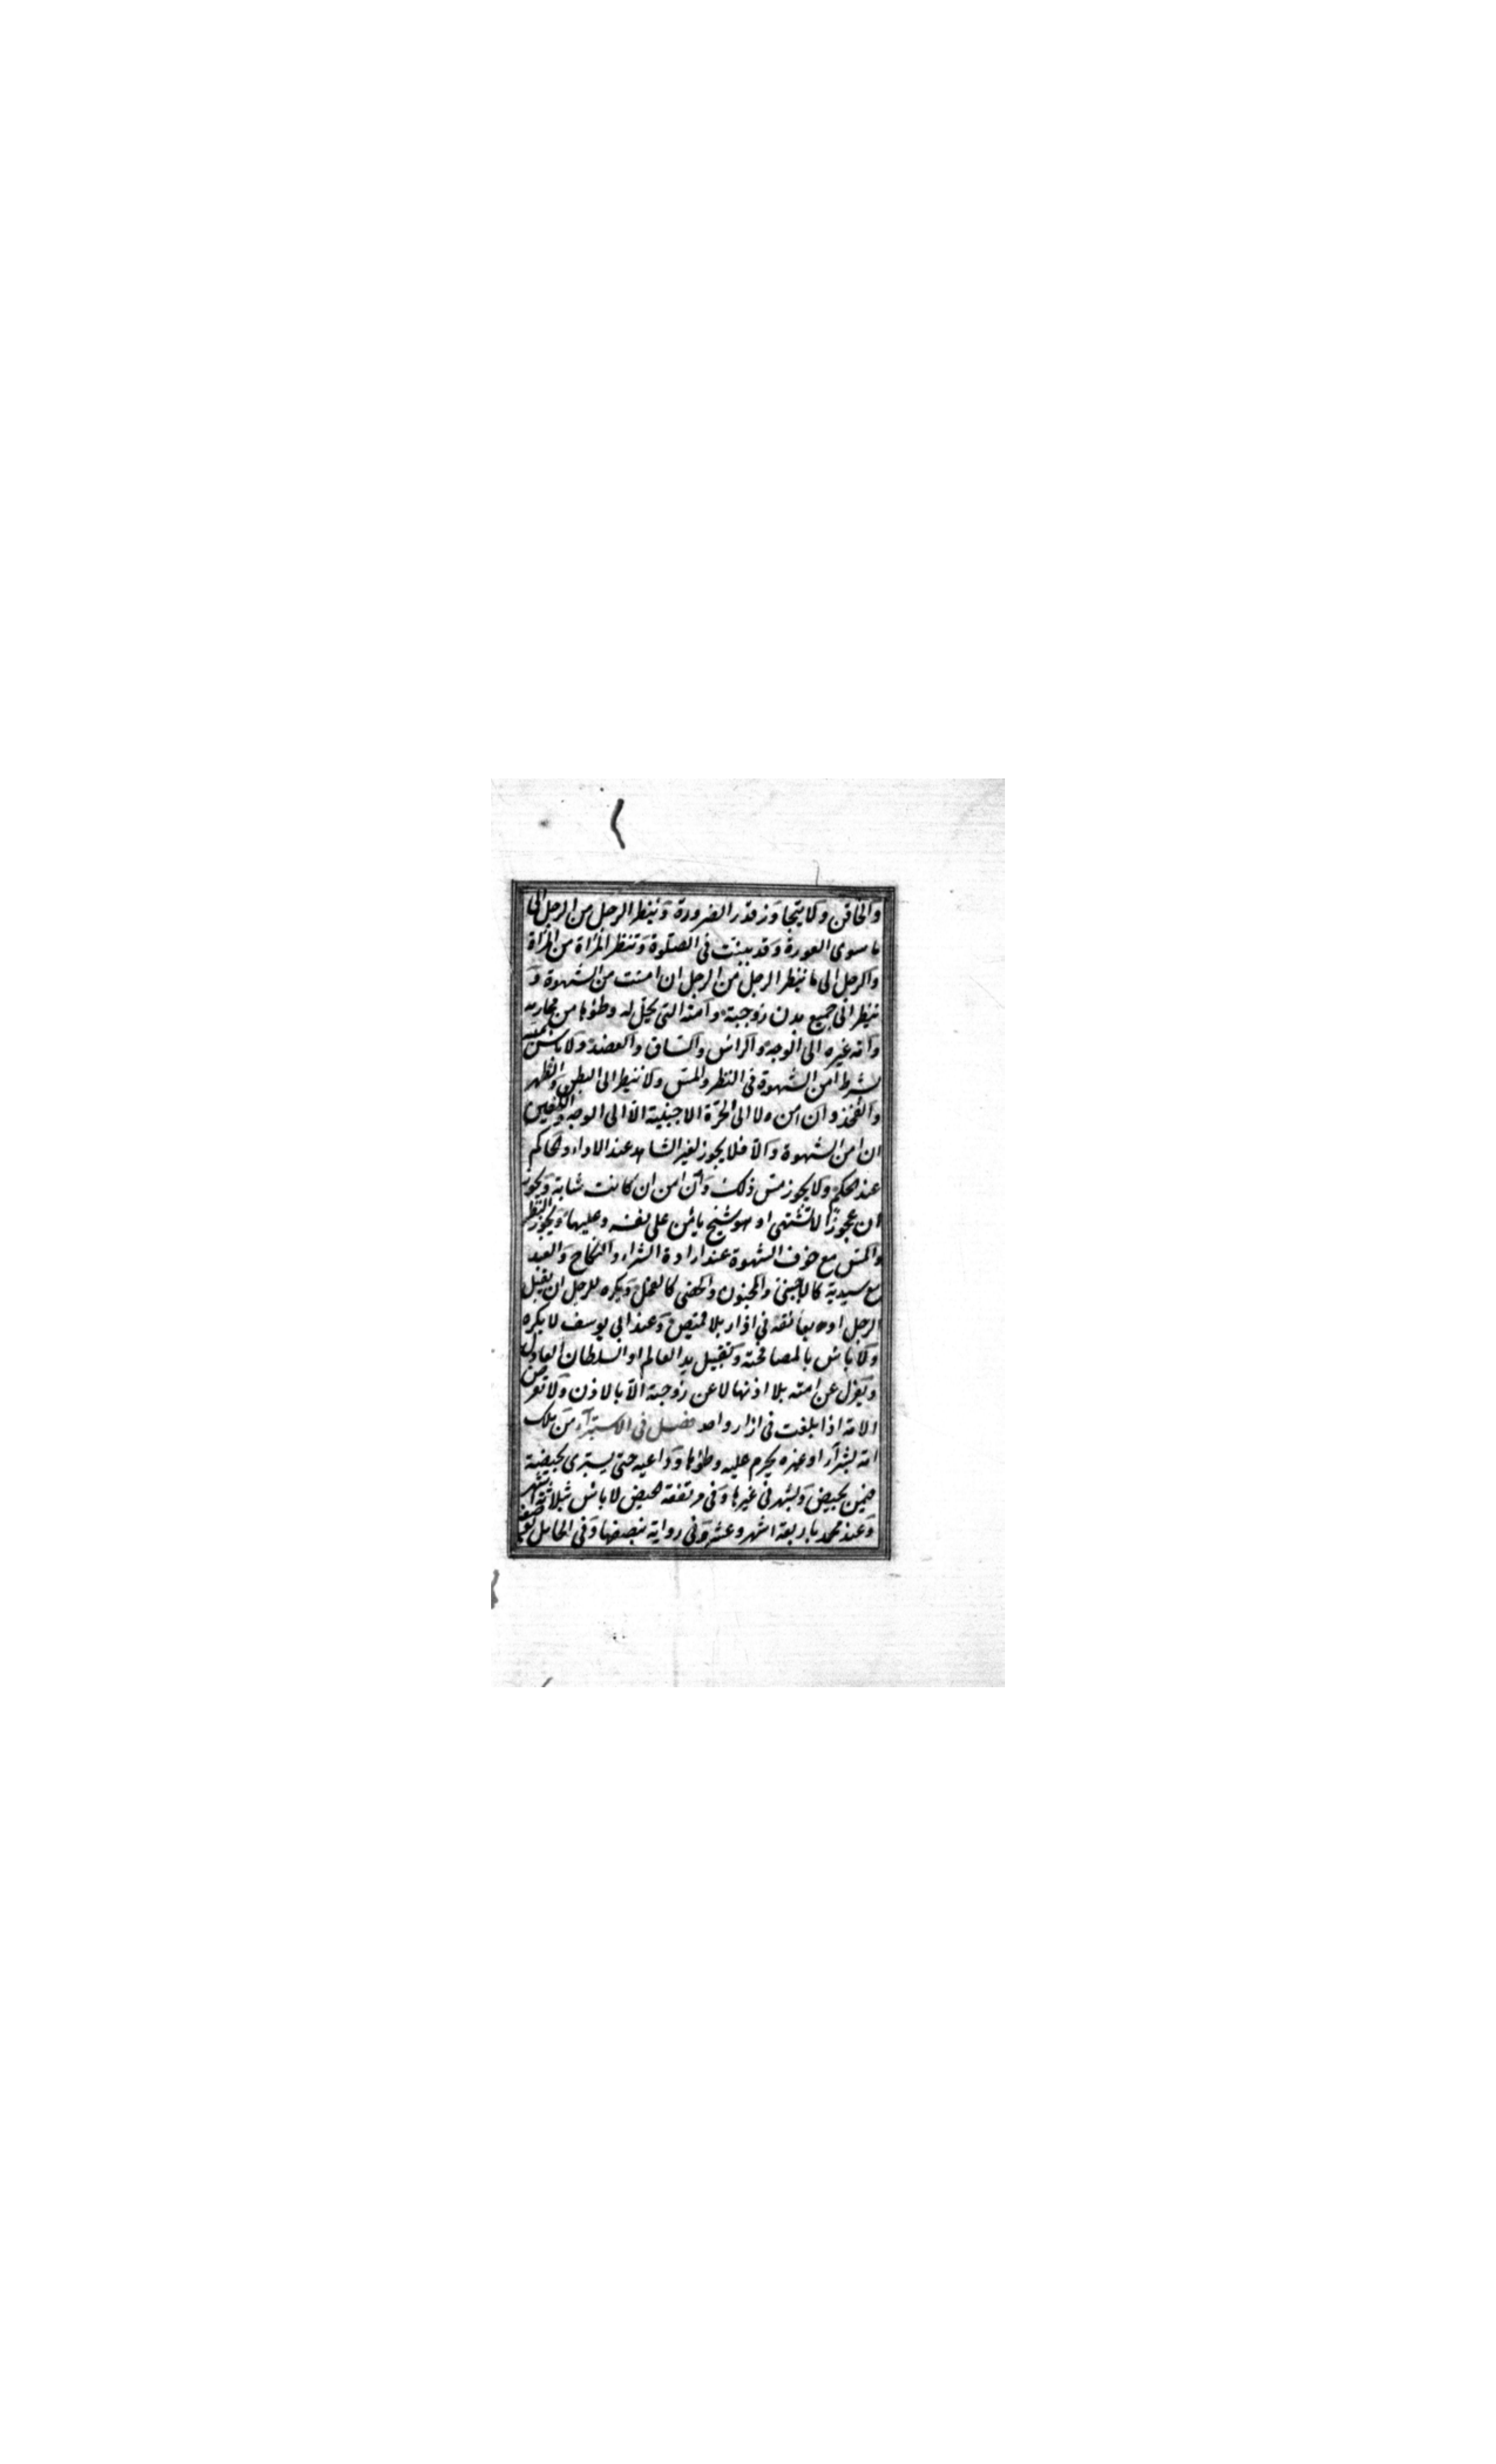 والحاقن ولا يتجاوز قدر الضرورة وينظر الرجل من الرجل الى
ما سوى العورة وقد بينت فى الصلوة وتنظر المرأة من المرأة
والرجل الى ما ينظر الرجل من الرجل ان امنت من الشهوة و
ينظر الى جميع بدن زوجته وامته التى يحل له وطؤها من محارمه
وامة غيره الى الوجه والرأس والساق والعضد ولا بأس بمسه
بشرط امن الشهوة فى النظر والمس ولا ينظر الى البطن والظهر
والفخذ وان امن ولا الى الحرة الاجنبية الا الى الوجه والكفين
ان امن الشهوة والا فلا يجوز لغير الشاهد عند الاداء والحاكم
عند الحكم ولا يجوز مس ذلك وان امن ان كانت شابة ويجوز
ان عجوزا لا تشتهى او هو شيخ يأمن على نفسه وعليها ويجوز النظر
والمس مع خوف الشهوة عند ارادة الشراء والنكاح والعبد
مع سيدته كالاجنبى والمجبون والخصى كالفحل ويكره للرجل ان يقبل
الرجل او يعانقه فى ازار بلا قميص وعند ابى يوسف لا يكره
ولا بأس بالمصافحة وتقبيل يد العالم او السلطان العادل
ويعزل عن امته بلا اذنها لا عن زوجته الا بالاذن ولا تعرض
الامة اذا بلغت فى ازار واحد فصل فى الاستبراء من ملك
امة بشراء او غيره يحرم عليه وطؤها ودواعيه حتى يستبرئ بحيضة
فيمن يحيض وبشهر فى غيرها وفى مرتفعة الحيض لا بأس بثلاثة اشهر
وعند محمد باربعة اشهر وعشر وفى رواية بنصفها وفى الحامل بوضعه